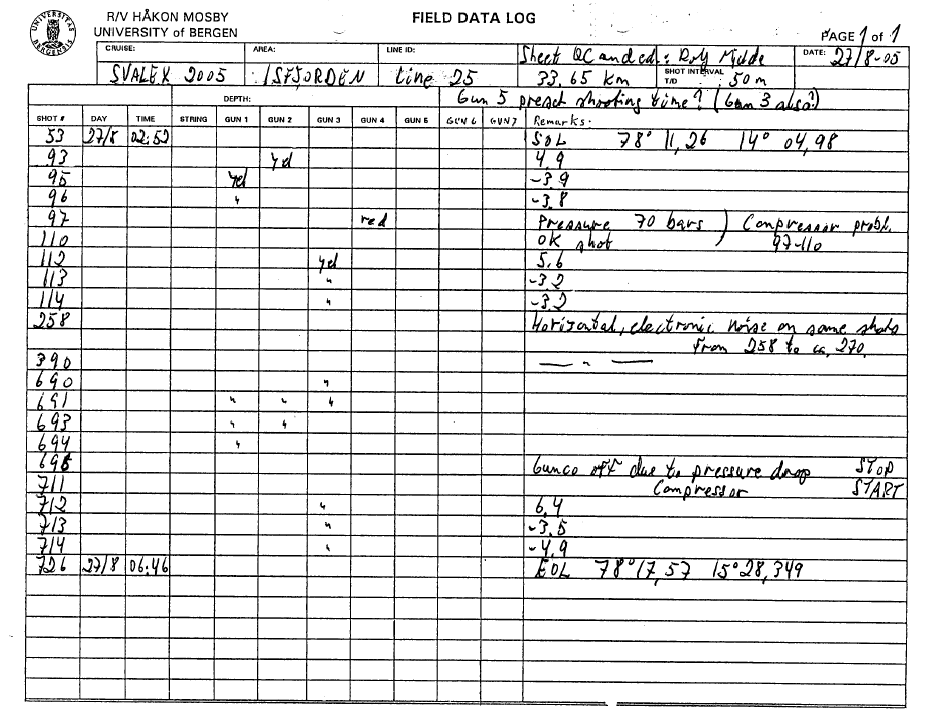 R/V HÅKON MOSBY
UNIVERSITY OF BERGEN
FIELD DATA LOG
PAGE 1 of 1
CRUISE: SVALEX 2005 AREA: ISFJORDEN LINE ID: Line 25 Sheet QC and ed.: Rolf Midde DATE: 27/8-05
33.65 km SHOT INTERVAL T/D 50 m
DEPTH: Gun 5 preset shooting time? (Gun 3 also?)
SHOT # DAY TIME STRING GUN 1 GUN 2 GUN 3 GUN 4 GUN 5 GUN 6 GUN 7 Remarks:
53 27/8 02:52 SOL 78° 11,26 14° 04,98
93 yel 4,9
95 yel -3,9
96 " -3,8
97 red Pressure 70 bars ) Compressor probl.
110 OK shot ) 97-110
112 yel 5,6
113 " -3,2
114 " -3,2
258 Horizontal, electronic noise on some shots
from 258 to ca. 270.
390 — " —
690 "
691 " " "
693 " "
694 "
695 Gunco off due to pressure drop STOP
711 Compressor START
712 " 6,4
713 " -3,5
714 " -4,9
726 27/8 06:46 EOL 78° 17,57 15° 28,349